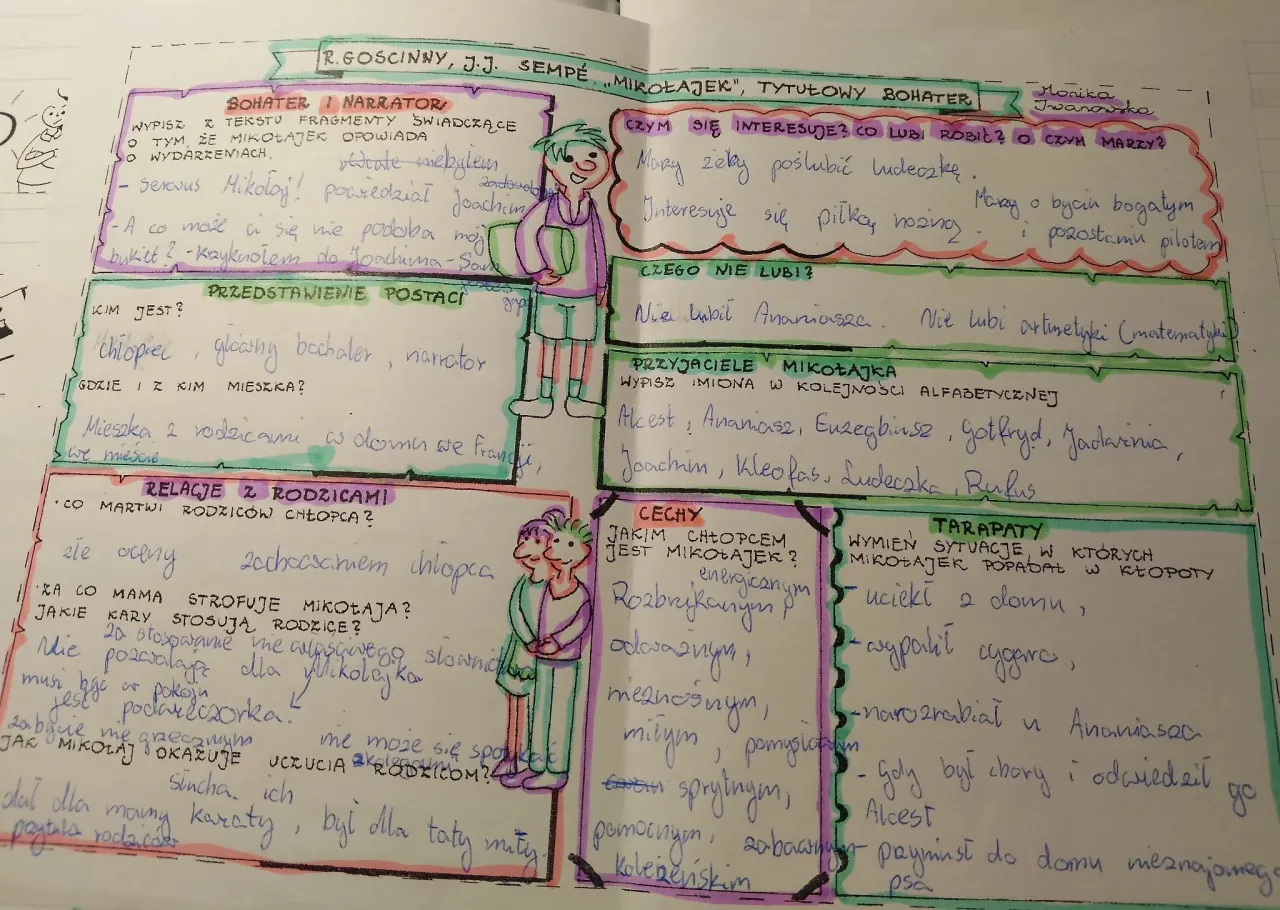 R. GOSCINNY, J.J. SEMPÉ „MIKOŁAJEK", TYTUŁOWY BOHATER
Monika
Iwanowska
BOHATER I NARRATOR
WYPISZ Z TEKSTU FRAGMENTY ŚWIADCZĄCE
O TYM, ŻE MIKOŁAJEK OPOWIADA
O WYDARZENIACH.
niebyłem
- Serwus Mikołaj! powiedział Joachim
- A co może ci się nie podoba mój
bukiet? - krzyknołem do Joachima - Sam
jesteś
CZYM SIĘ INTERESUJE? CO LUBI ROBIĆ? O CZYM MARZY?
Marzy żeby poślubić ludeczkę.
Marzy o byciu bogatym
Interesuje się piłką nożną. i pozostaniu pilotem
CZEGO NIE LUBI?
Nie lubił Ananiasza. Nie lubi artmetyki (matematyki)
PRZEDSTAWIENIE POSTACI
KIM JEST?
chłopiec, główny bochater, narrator
GDZIE I Z KIM MIESZKA?
Mieszka z rodzicami w domu we Francji,
we mieście
PRZYJACIELE MIKOŁAJKA
WYPISZ IMIONA W KOLEJNOŚCI ALFABETYCZNEJ
Alcest, Ananiasz, Euzegbiusz, Gotfryd, Jadwinia,
Joachim, Kleofas, Ludeczka, Rufus
RELACJE Z RODZICAMI
· CO MARTWI RODZICÓW CHŁOPCA?
złe oceny zachowaniem chłopca
· ZA CO MAMA STROFUJE MIKOŁAJA?
JAKIE KARY STOSUJĄ RODZICE?
za stosowanie nie właściwego słownictwa
Nie pozwalają dla Mikołajka
musi być w pokoju
jeść podwieczorka.
za bycie nie grzecznym nie może się spotykać
z kolegami
JAK MIKOŁAJ OKAZUJE UCZUCIA RODZICOM?
słucha ich
dał dla mamy kwiaty, był dla taty miły.
przytula rodziców
CECHY
JAKIM CHŁOPCEM
JEST MIKOŁAJEK?
energicznym
Rozbrykanym,
odważnym,
nieznośnym,
miłym, pomysłowym
sprytnym,
pomocnym, zabawnym
koleżeńskim
TARAPATY
WYMIEŃ SYTUACJE, W KTÓRYCH
MIKOŁAJEK POPADAŁ W KŁOPOTY
- uciekł z domu,
- wypalił cygaro,
- narozrabiał u Ananiasza
- Gdy był chory i odwiedził go
Alcest
- przyniusł do domu nieznajomego
psa